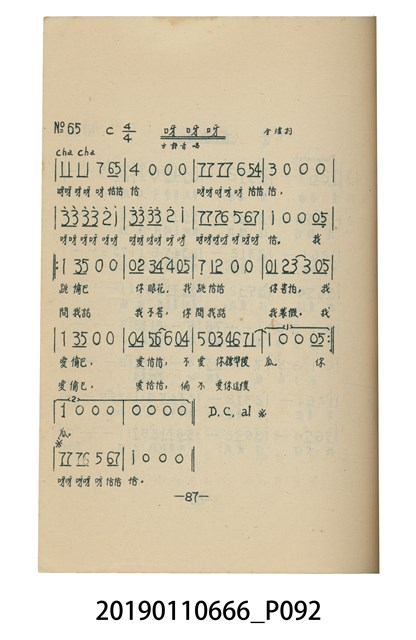 №65 C 4/4 呀呀呀
方靜音唱
cha cha
11 11 7 65 | 4 0 0 0 | 77 77 6 54 | 3 0 0 0 |
呀呀呀呀呀恰恰 恰 呀呀呀呀呀恰恰恰,
33 33 2 i | 33 33 2 i | 77 76 5 67 | i 0 0 05
呀呀呀呀呀呀 呀呀呀呀呀呀 呀呀呀呀呀呀呀 恰. 我
1 35 0 0 | 02 34 4 05 | 7 12 0 0 | 01 23 3 05
跳 你眼花, 我跳恰恰 你 我
問我話 我不答, 你問我話 我 我
1 35 0 0 | 04 56 6 04 | 5 03 46 71 | 1 0 0 05
愛 愛恰恰, 不愛你 瓜. 你
愛 愛恰恰, 偏不愛你這
1 0 0 0 | 0 0 0 0 D.C. al ※
瓜.
77 76 5 67 | i 0 0 0
呀呀呀呀呀恰恰 恰.
—87—
20190110666_P092